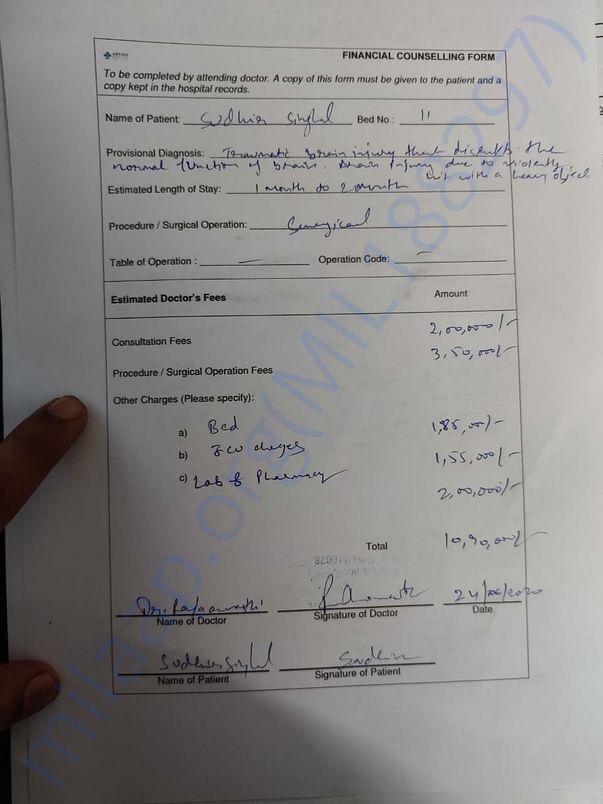 FINANCIAL COUNSELLING FORM
To be completed by attending doctor. A copy of this form must be given to the patient and a
copy kept in the hospital records.
Name of Patient: Sudhir Singhal Bed No.: 11
Provisional Diagnosis: Traumatic brain injury that disrupts the
normal function of brain. Brain Injury due to violently
hit with a heavy object
Estimated Length of Stay: 1 month to 2 month
Procedure / Surgical Operation: Surgical
Table of Operation : — Operation Code: —
Estimated Doctor's Fees Amount
Consultation Fees 2,00,000/-
Procedure / Surgical Operation Fees 3,50,000/-
Other Charges (Please specify):
a) Bed 1,85,00/-
b) ICU charges 1,55,000/-
c) Lab & Pharmacy 2,00,000/-
Total 10,90,000/-
Dr. 24/06/2020
Name of Doctor Signature of Doctor Date
Sudhir Singhal Sudhir
Name of Patient Signature of Patient
milaap.org(MIL188297)